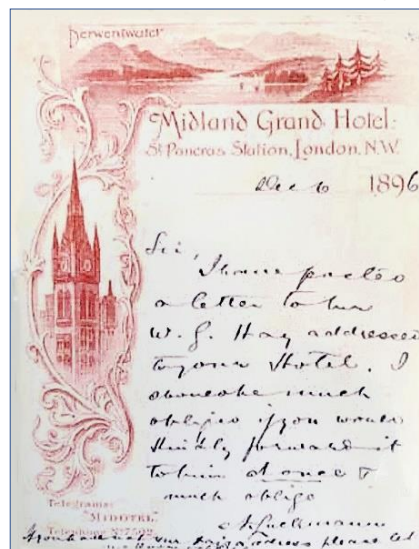 Derwentwater
Midland Grand Hotel:
St Pancras Station, London, N.W.
Dec 6 1896
Sir,
I have posted
a letter to
W. G. Hay addressed
to your Hotel. I
should be much
obliged if you would
kindly forward it
to him at once &
much oblige
Telegrams:
"MIDOTEL"
Telephone No 7502
If you have not address please let